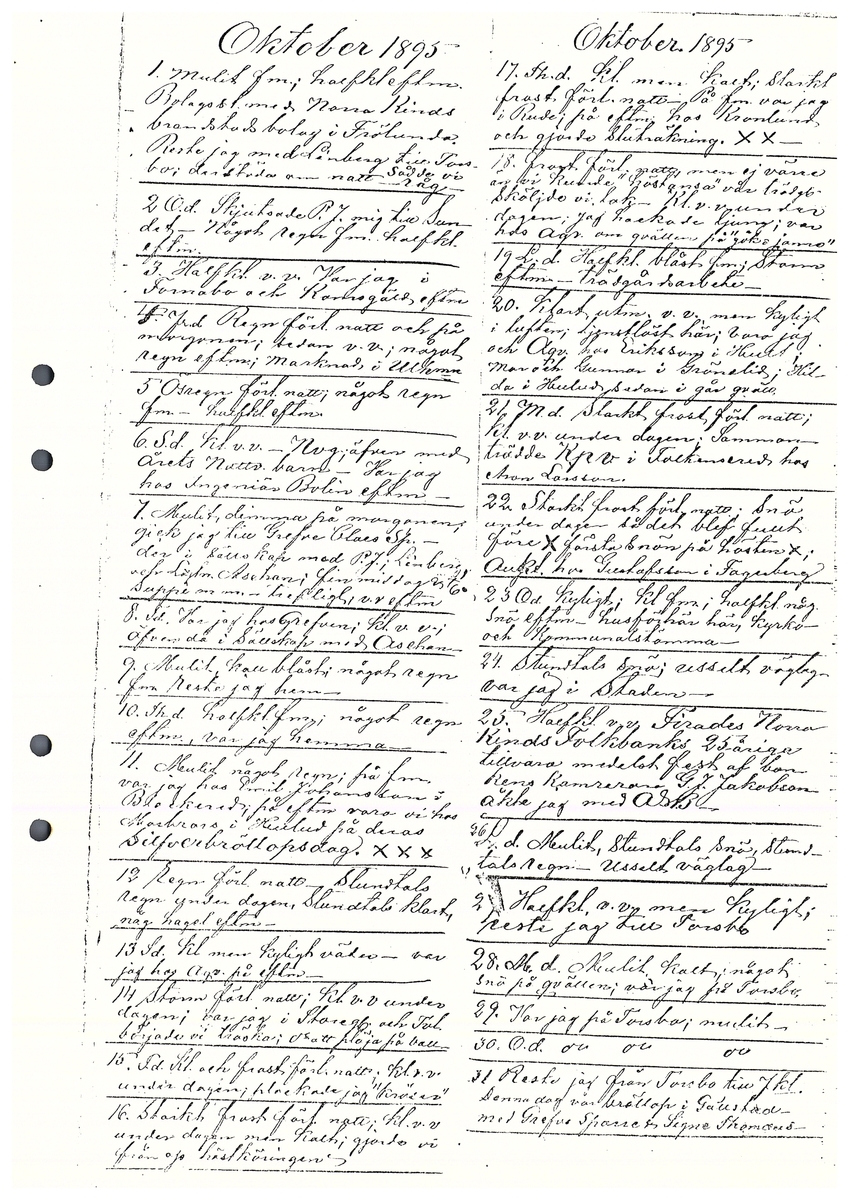 Oktober 1895
1. Mulit fm.; halfkl eftm.
Bolagsst. med Norra Kinds
brandstods bolag i Frölunda.
Reste jag med Linberg till Tors-
bo; der stöta om natt Sådde vi
råg
2 Od. Skjutsade P.J. mig till Sun-
det — Något regn fm. halfkl.
eftm.
3. Halfkl v.v. Var jag i
Tornabo och Ramsgäld eftm
4. Frd Regn förl. natt och på
morgonen; sedan v.v.; något
regn eftm; Marknad i
5 Ösregn förl. natt; något regn
fm — halfkl eftm
6. S.d. Kl. v.v. — Nvg; äfven med
Årets Nattv. barn — Var jag
hos Ingeniör Bolin eftm —
7. Mulit, dimma på morgonen;
gick jag till Grefve Claes Sp. —
der i Sällskap med P.J. Linberg
och Löjtn. Aschan; fin middag
Suppé m m — trefligt, v.v eftm
8. Td. Var jag hos Grefven; Kl v.v.;
äfven då i Sällskap med Aschan
9. Mulit, kall blåst; något regn
fm reste jag hem —
10. Th.d. halfkl fm; något regn
eftm, var jag hemma —
11. Mulit något regn; på fm.
var jag hos Emil Johansson i
på eftm voro vi hos
Morbrors i Hulud på deras
Silfverbröllopsdag. x x x
12 Regn förl. natt — Stundtals
regn under dagen, Stundtals klart,
någ hagel eftm —
13 Sd. Kl men kyligt väder — var
jag hos Agv. på eftm —
14 Storm förl. natt; Kl. v.v under
dagen; var jag i och
började vi tröska; och att plöja på vall
15. Td. Kl. och frost förl. natt. Kl. v.v.
under dagen; plockade jag "kröser"
16. Starkt frost förl natt; kl. v.v
under dagen men kallt; gjorde vi
ifrån oss höstköringen
Oktober. 1895
17. Th.d. Kl. men kallt; Starkt
frost förl. natt — På fm. var jag
i Rude; på eftm; hos Kronlund
och gjorde Sluträkning. x x —
18. Frost förl. natt, men ej värre
än vi kunde "höstrensa" vår trädg.
Sköljde vi lök — Kl. v.v. under
dagen; jag hackade ljung; var
hos Agv. om qvällen på "göke jamo"
19 L.d. Halfkl. blåst fm; Storm
eftm — trädgårdsarbete —
20. Klart, utm. v.v. men kyligt
i luften; tjenstlöst här; voro jag
och Agv. hos Eriksson i Hult;
Mor och Gunnar i Grönelid; Hil-
da i Hulud sedan i går qväll
21. M.d. Starkt frost förl. natt;
kl. v.v. under dagen; Samman-
trädde Kpv i Folkensered hos
Aron Larsson.
22. Starkt frost förl. natt; Snö
under dagen så det blef fullt
före x första Snön på hösten x;
hos Gustafsson i Fagerberg
23 Od. Kyligt; kl fm; halfkl. någ.
Snö eftm — husförhör här, Kyrko-
och Kommunalstämma —
24. Stundtals Snö; usselt väglag
var jag i Staden —
25. Halfkl. v.v. Firades Norra
Kinds Folkbanks 25 åriga
tillvaro medelst fest af ban
kens kamrerare G.J. Jakobson
åkte jag med
26 L.d. Mulit, Stundtals Snö, Stund-
tals regn — Usselt väglag —
27 Halfkl. v.v. men kyligt;
reste jag till Torsbo
28. M.d. Mulit, kallt; något
Snö på qvällen; var jag på Torsbo
29. Var jag på Torsbo; mulit —
30. O.d. oo oo oo
31 Reste jag från Torsbo till
Denna dag var bröllop i Gäustad —
med Grefve Sparre & Signe Thomæus —